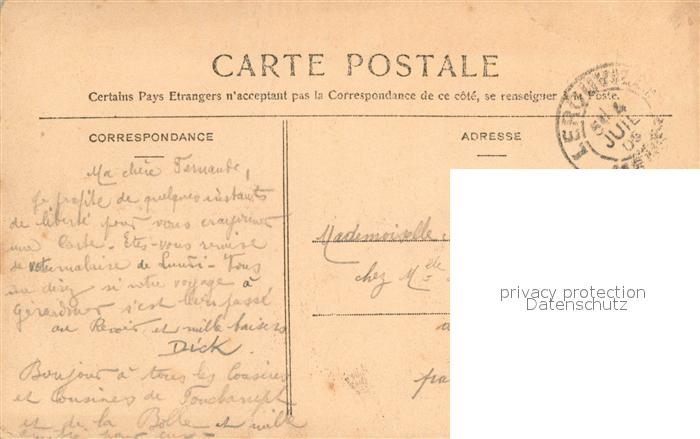 CARTE POSTALE
Certains Pays Etrangers n'acceptant pas la Correspondance de ce côté, se renseigner à la Poste.
CORRESPONDANCE
ADRESSE
JUIL
Ma chère Fernande,
Je profite de quelques instants
de liberté pour vous
une Carte - Êtes-vous remise
de votre malaise de Lundi - Vous
me direz si votre voyage à
Gérardmer s'est bien passé
au Revoir et mille baisers
Dick.
Bonjour à tous les Cousins
et Cousines de
et de la Bolle et mille
Mademoiselle
chez Melle
privacy protection
Datenschutz